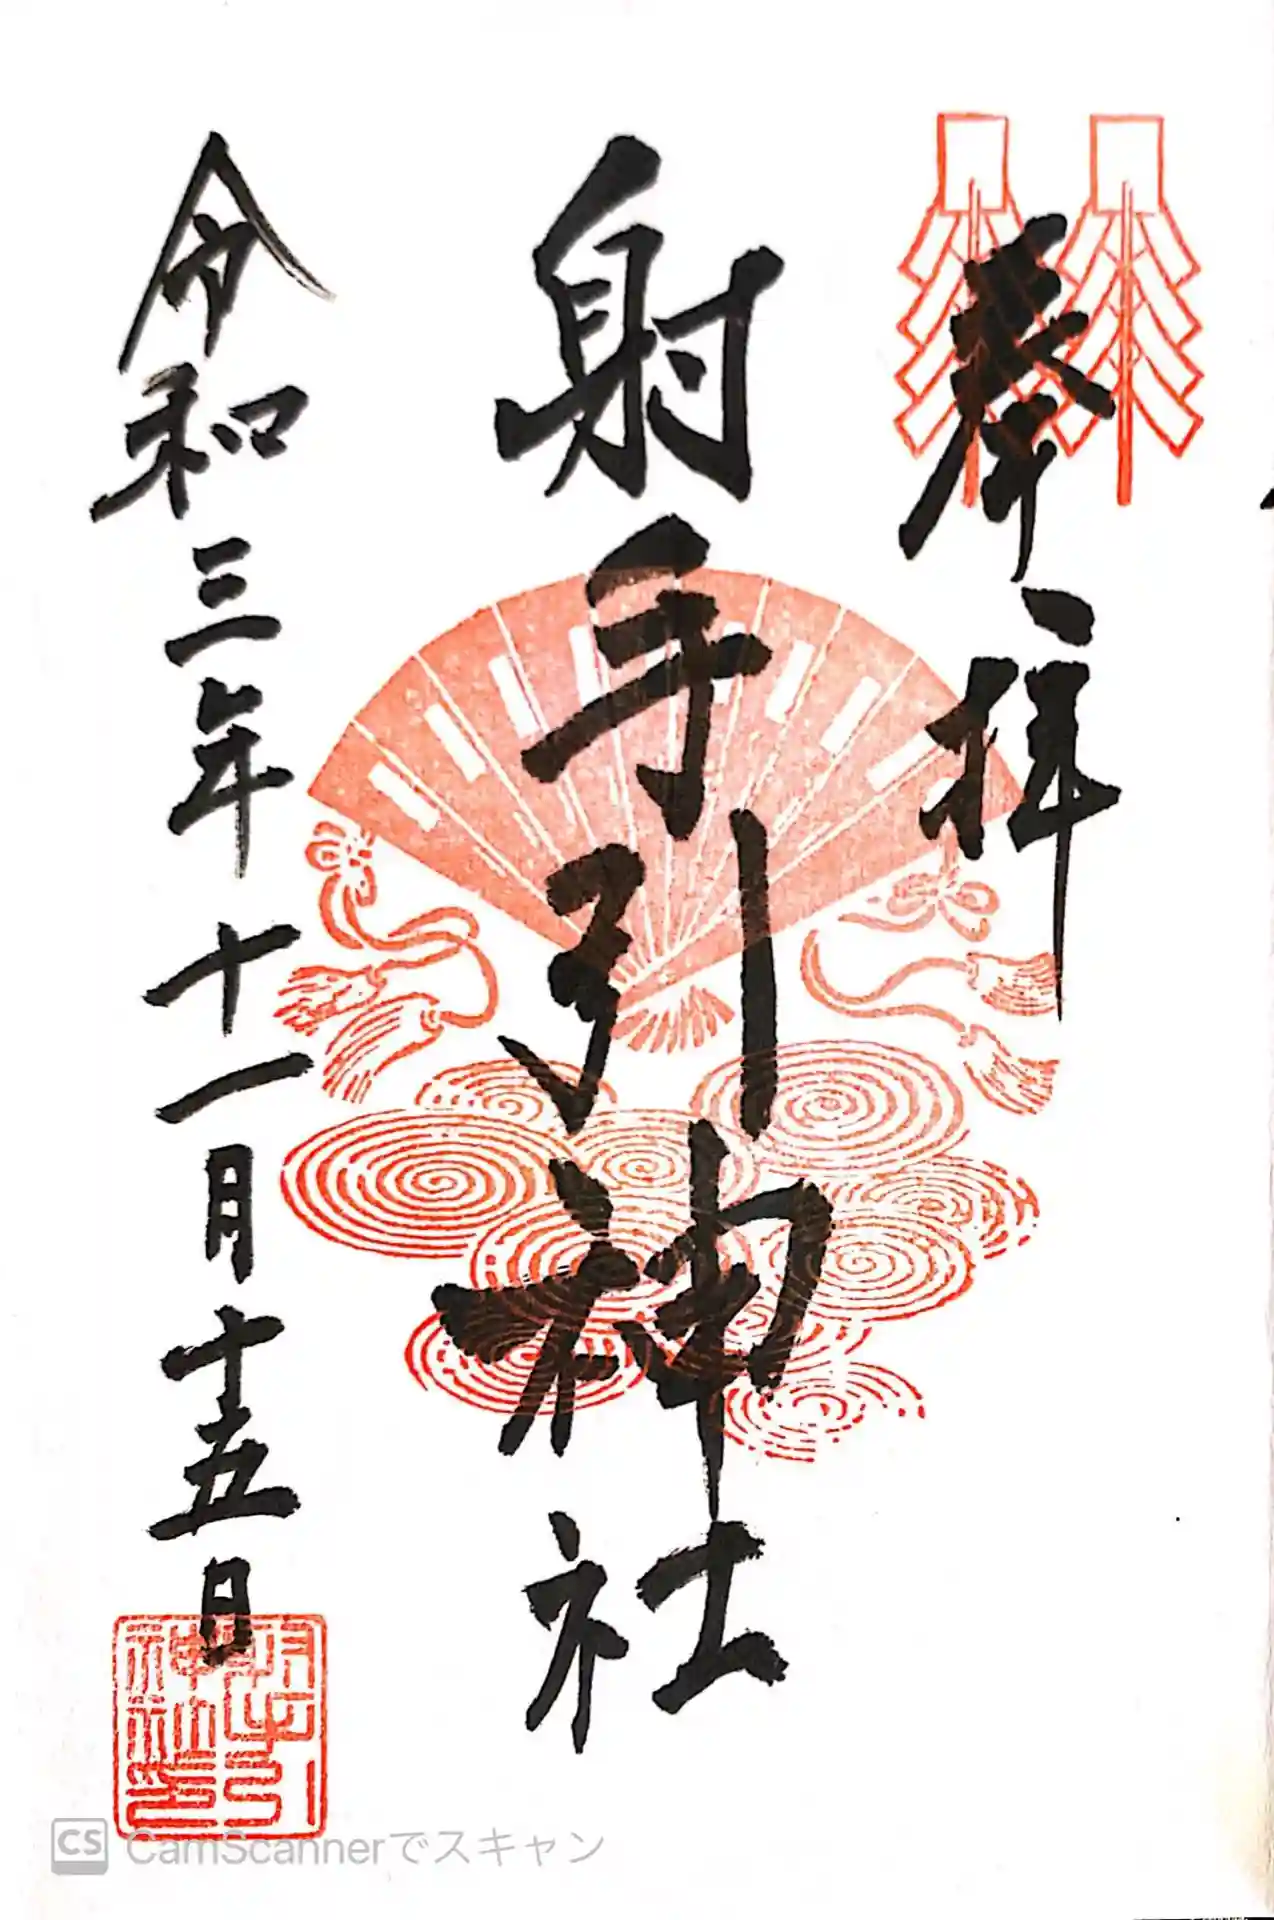 奉拝
射手引神社
令和三年十一月十五日
射手引
神社印
CS CamScannerでスキャン